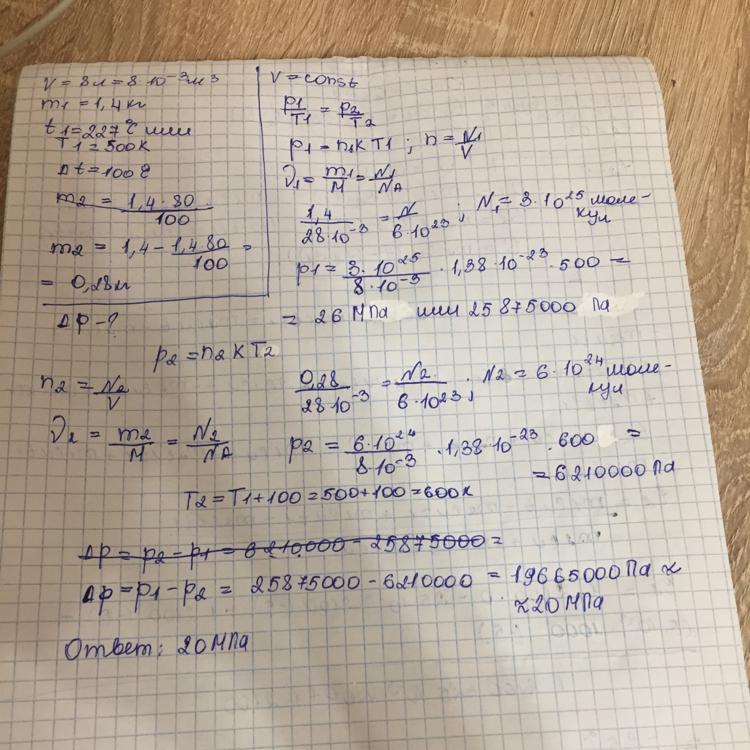 V = 8л = 8·10⁻³м³
m1 = 1,4 кг
t1 = 227°C или
T1 = 500K
Δt = 100°C
m2 = 1,4·80/100
m2 = 1,4 - 1,4·80/100 =
= 0,28кг
Δp - ?
V = const
p1/T1 = p2/T2
p1 = n1KT1 ; n = N1/V
ν1 = m1/M = N1/NA
1,4/28·10⁻³ = N/6·10²³ ; N1 = 3·10²⁵ моле-
кул
p1 = 3·10²⁵/8·10⁻³ · 1,38·10⁻²³ · 500 =
= 26 МПа или 25875000 Па
p2 = n2KT2
n2 = N2/V
ν2 = m2/M = N2/NA
0,28/28·10⁻³ = N2/6·10²³ ; N2 = 6·10²⁴ моле-
кул
p2 = 6·10²⁴/8·10⁻³ · 1,38·10⁻²³ · 600 =
= 6210000 Па
T2 = T1 + 100 = 500 + 100 = 600K
Δp = p2 - p1 = 6210000 - 25875000 =
Δp = p1 - p2 = 25875000 - 6210000 = 19665000 Па ≈
≈ 20 МПа
Ответ: 20 МПа